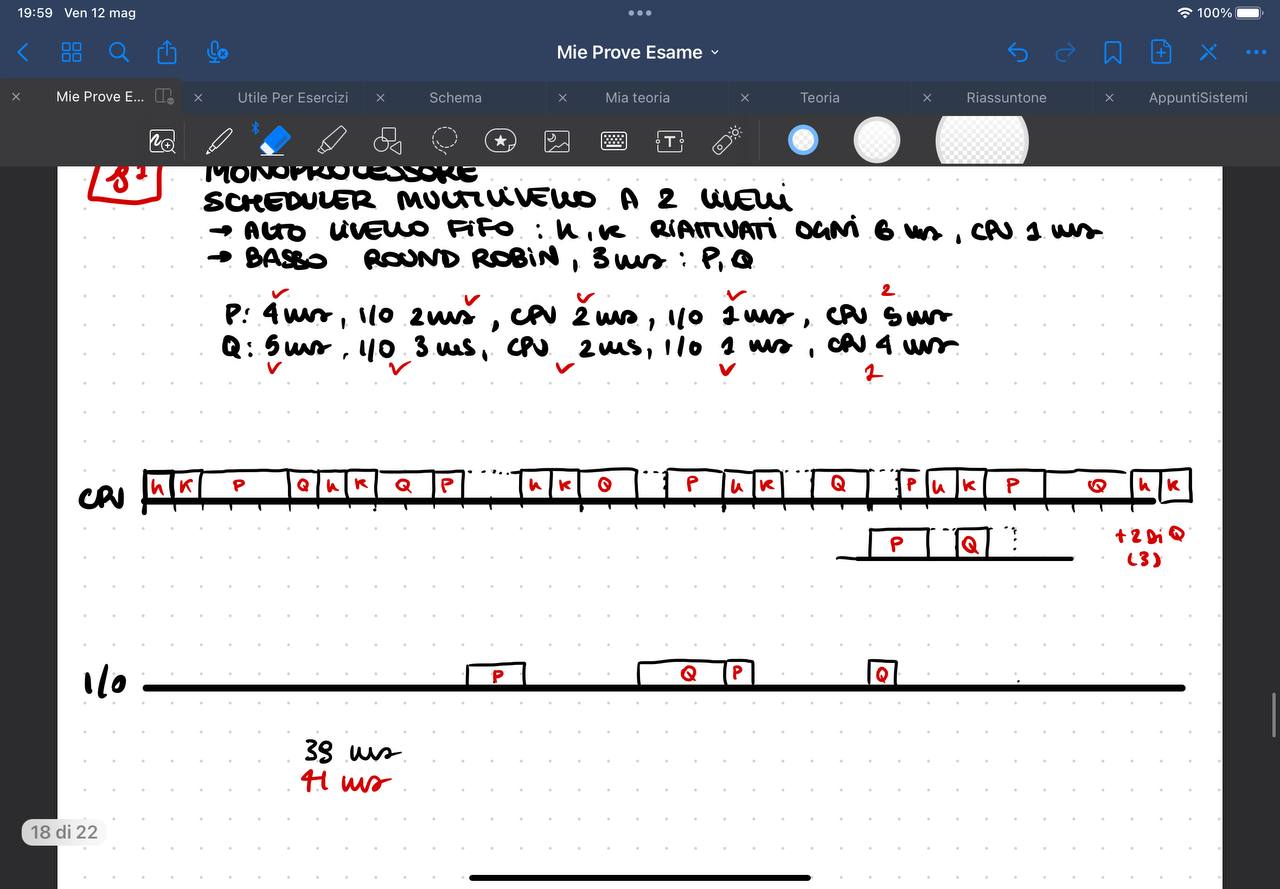 19:59 Ven 12 mag
100%
Mie Prove Esame
Mie Prove E...
Utile Per Esercizi
Schema
Mia teoria
Teoria
Riassuntone
AppuntiSistemi
MONOPROCESSORE
SCHEDULER MULTILIVELLO A 2 LIVELLI
→ ALTO LIVELLO FIFO : H, K RIATTIVATI OGNI 6 ms, CPU 1 ms
→ BASSO ROUND ROBIN, 3 ms : P, Q
2
P: 4 ms, I/O 2 ms, CPU 2 ms, I/O 1 ms, CPU 5 ms
Q: 5 ms, I/O 3 ms, CPU 2 ms, I/O 1 ms, CPU 4 ms
1
CPU H K P Q H K Q P H K Q P H K Q P H K P Q H K
P Q +2 DI Q
(3)
I/O P Q P Q
38 ms
41 ms
18 di 22